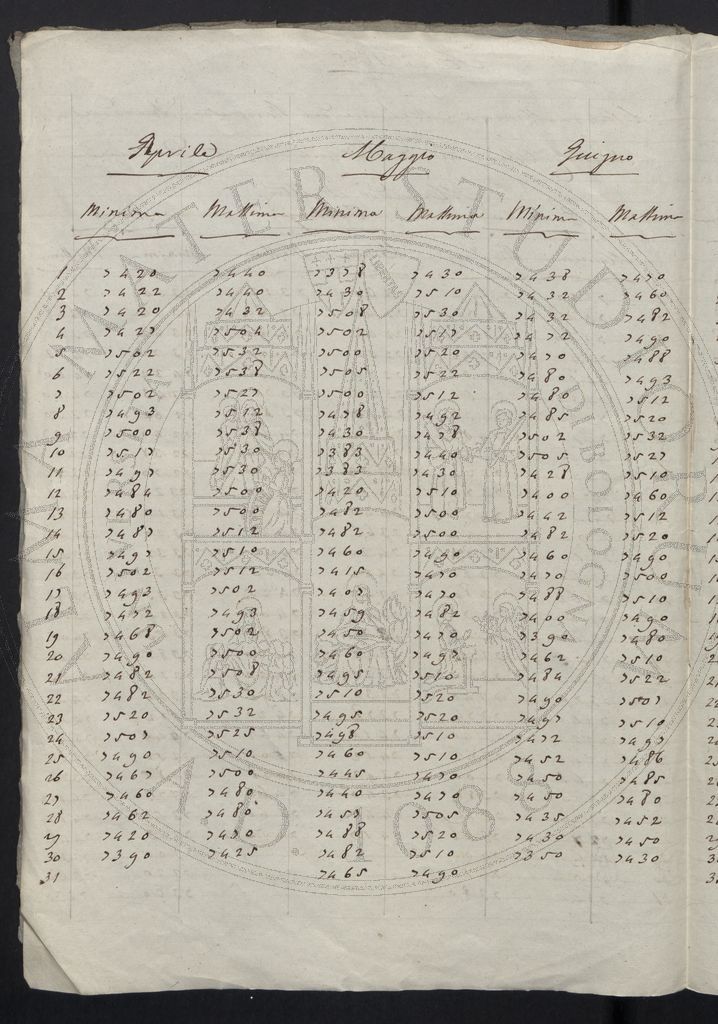 Aprile Maggio Guigno
Minima Massima Minima Massima Minima Massima
1 7420 7440 7378 7430 7438 7470
2 7422 7440 7430 7510 7432 7460
3 7420 7432 7508 7530 7432 7482
4 7427 7504 7502 7517 7472 7490
5 7502 7532 7500 7520 7470 7488
6 7522 7538 7505 7522 7480 7493
7 7502 7527 7500 7512 7480 7512
8 7493 7512 7478 7492 7485 7520
9 7500 7538 7430 7478 7502 7532
10 7517 7530 7383 7440 7505 7527
11 7497 7530 7383 7430 7428 7510
12 7484 7500 7420 7510 7400 7460
13 7480 7500 7482 7500 7442 7512
14 7487 7512 7482 7500 7482 7520
15 7497 7510 7460 7490 7460 7490
16 7502 7512 7415 7470 7470 7500
17 7493 7502 7407 7470 7488 7510
18 7472 7493 7459 7482 7400 7490
19 7468 7502 7450 7470 7390 7480
20 7490 7500 7460 7497 7462 7510
21 7482 7508 7495 7510 7484 7522
22 7482 7530 7510 7520 7490 7507
23 7520 7532 7495 7520 7497 7510
24 7507 7525 7498 7510 7472 7497
25 7490 7510 7460 7510 7452 7486
26 7467 7500 7445 7470 7450 7485
27 7460 7480 7440 7470 7450 7480
28 7462 7480 7457 7505 7435 7452
29 7420 7470 7488 7520 7430 7450
30 7390 7425 7482 7510 7350 7430
31 7465 7490
ALMA MATER STUDIORUM
A.D. 1088